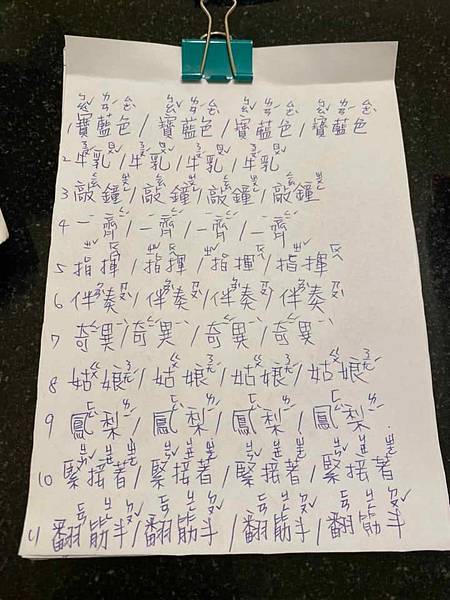 1 寶藍色/寶藍色/寶藍色/寶藍色
2 牛乳/牛乳/牛乳/牛乳
3 敲鐘/敲鐘/敲鐘/敲鐘
4 一齊/一齊/一齊/一齊
5 指揮/指揮/指揮/指揮
6 伴奏/伴奏/伴奏/伴奏
7 奇異/奇異/奇異/奇異
8 姑娘/姑娘/姑娘/姑娘
9 鳳梨/鳳梨/鳳梨/鳳梨
10 緊接著/緊接著/緊接著/緊接著
11 翻筋斗/翻筋斗/翻筋斗/翻筋斗